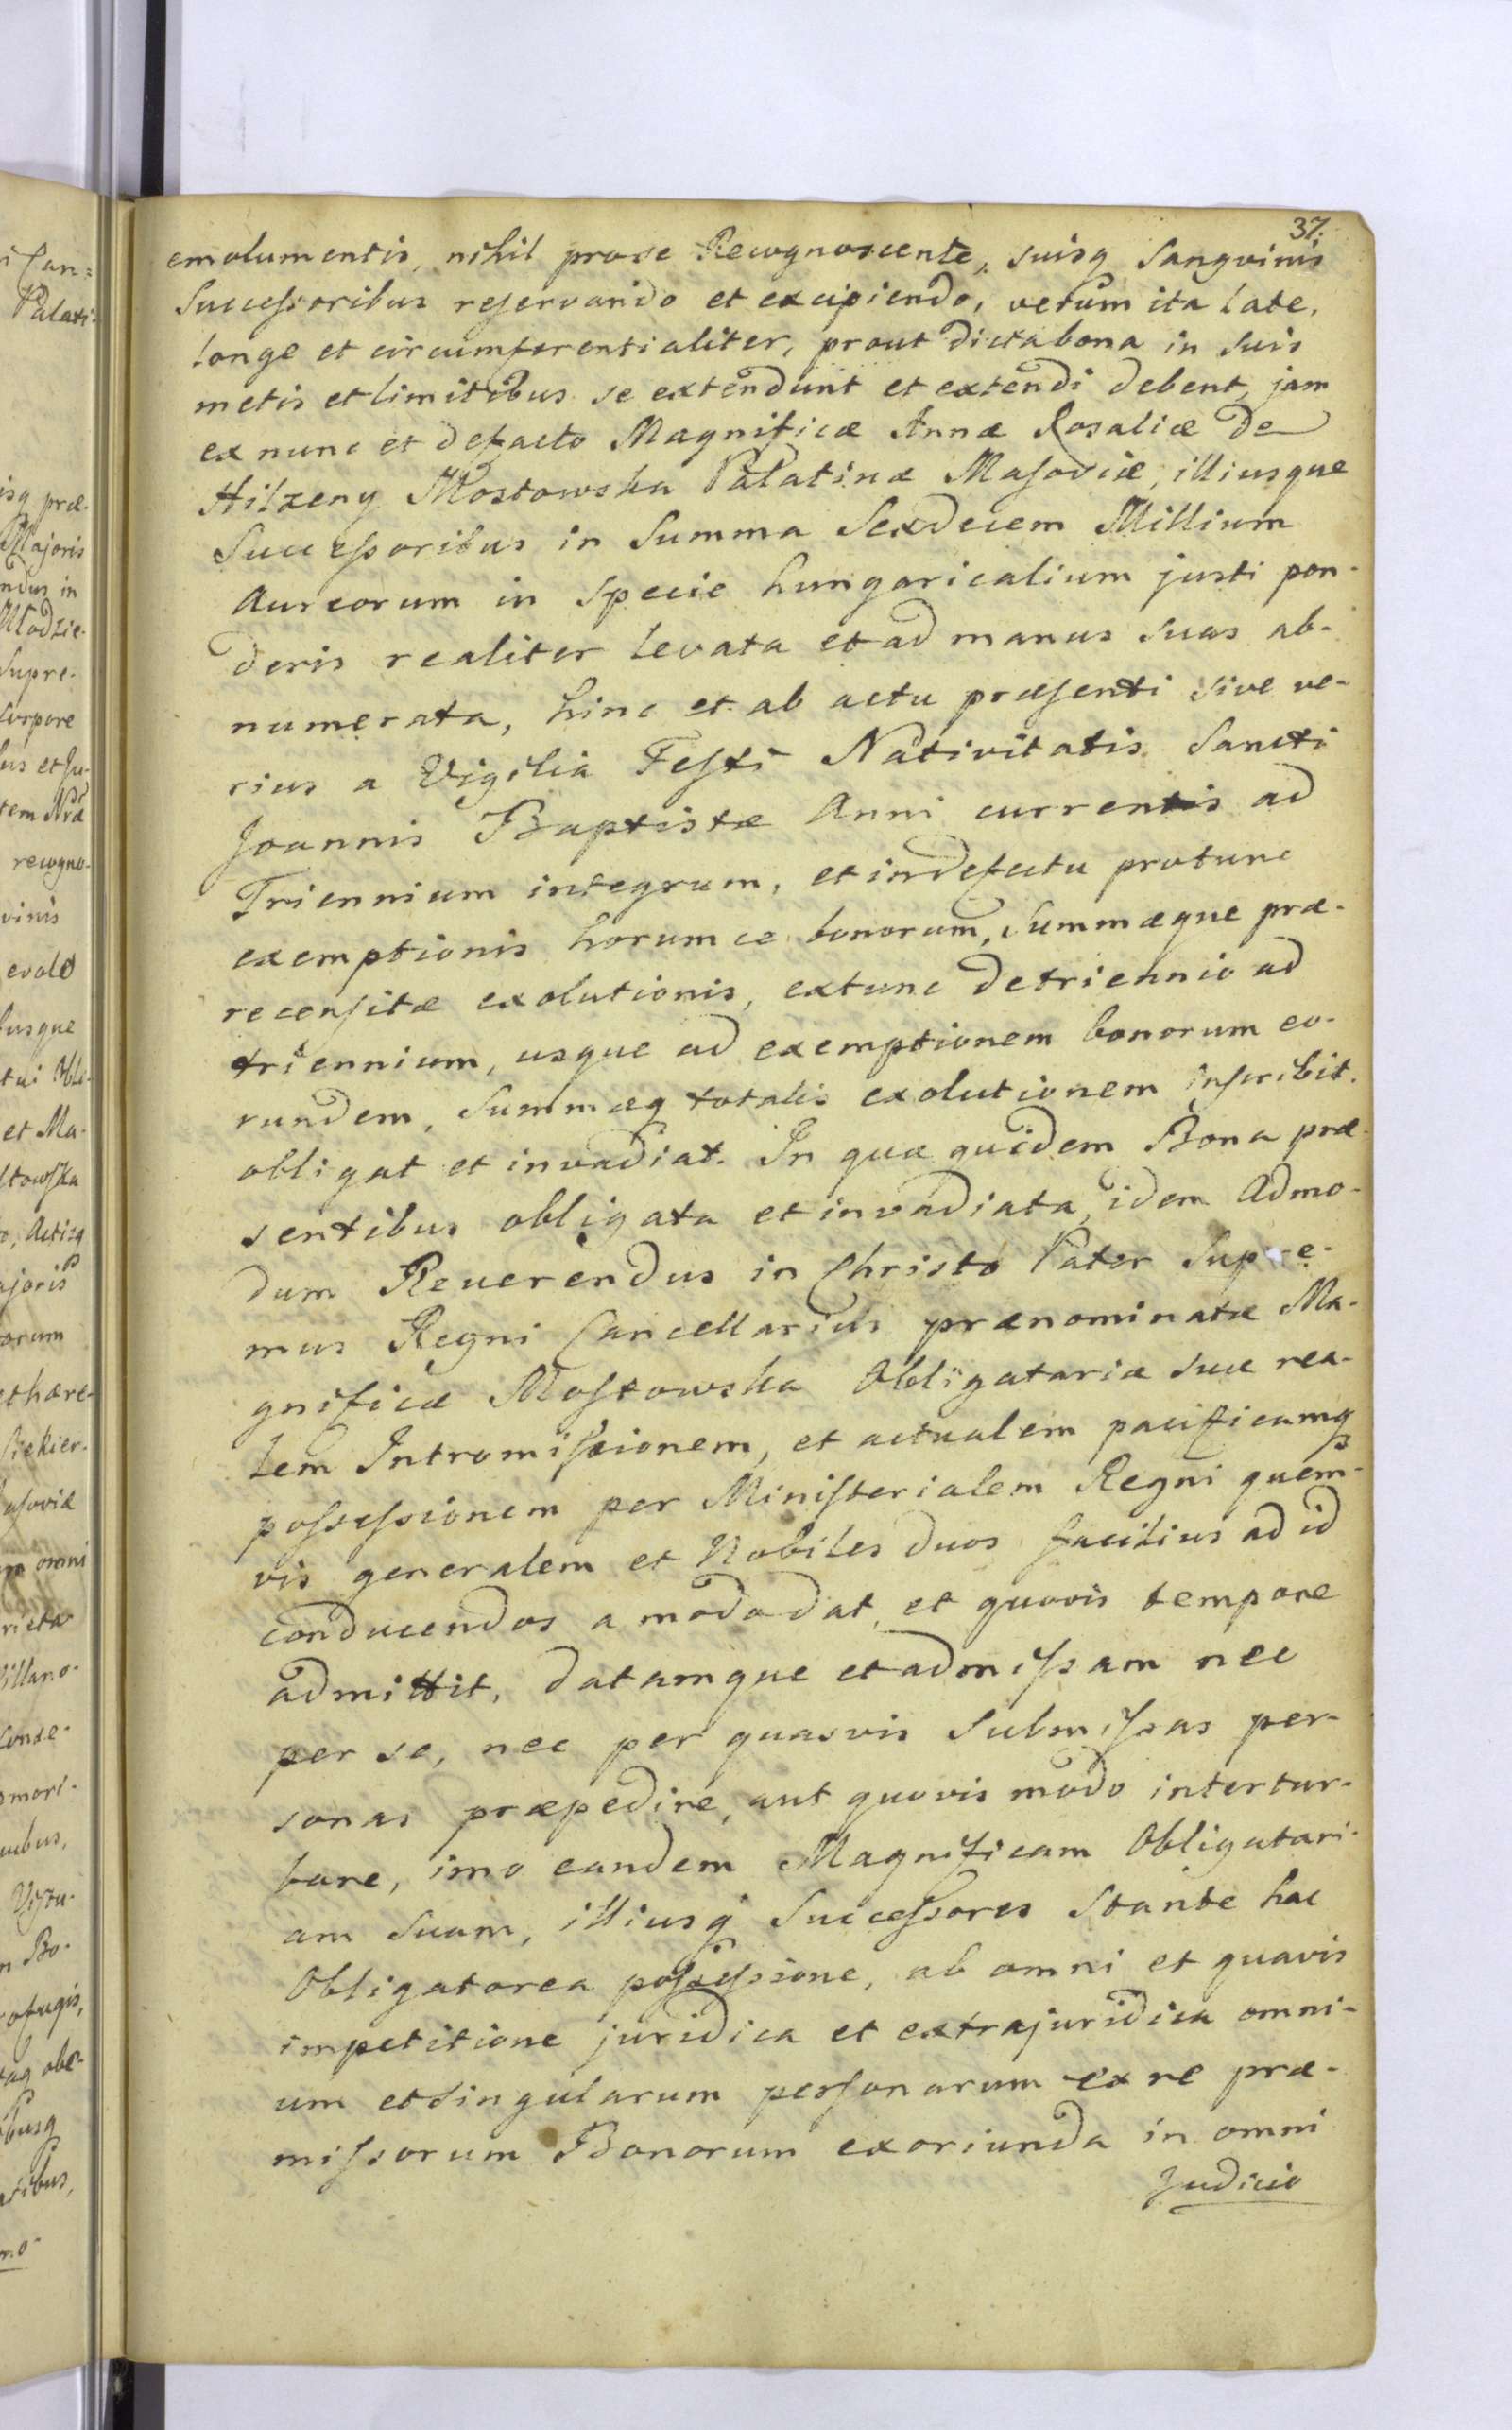 37.
emolumentis, nihil prose Recognoscente, suisq sangvinis
Successoribus reservando et excipiendo, verum ita late,
longe et circumferentialiter, prout dicta bona in suis
metis et limitibus se extendunt et extendi debent, jam
ex nunc et defacto Magnificæ Annæ Rosaliæ De
Hilzeny Mostowska Palatinæ Masoviæ, illiusque
Successoribus in Summa Sexdecem Millium
Aureorum in specie hungaricalium justi pon-
deris realiter levata et ad manus suas ab-
numerata, hinc et ab actu præsenti sive ve-
rius a Vigilia Festi Nativitatis Sancti
Joannis Baptistæ Anni currentis ad
Triennium integrum, et indefectu protunc
exemptionis horumce bonorum, Summæque præ-
recensitæ exolutionis, extunc de triennio ad
triennium, usque ad exemptionem bonorum eo-
rundem, Summæq totalis exolutionem inscribit.
obligat et invadiat. In quæ quidem Bona præ-
sentibus obligata et invadiata, idem Admo-
dum Reverendus in Christo Pater Supre-
mus Regni Cancellarius prænominatæ Ma-
gnificæ Mostowska Obligatariæ suæ rea-
lem Intromissionem, et actualem pacificamq
possessionem per Ministerialem Regni quem-
vis generalem et Nobiles duos facilius ad id
conducendos a modo dat, et quovis tempore
admittit, datamque et admissam nec
per se, nec per quasvis submissas per-
sonas præpedire, aut quovis modo intertur-
bare, imo eandem Magnificam Obligatari-
am suam, illiusq Successores Stante hac
Obligatorea possessione, ab omni et quavis
impetitione juridica et extrajuridica omni-
um et singularum personarum ex re præ-
missorum Bonorum exoriunda in omni
Judicio